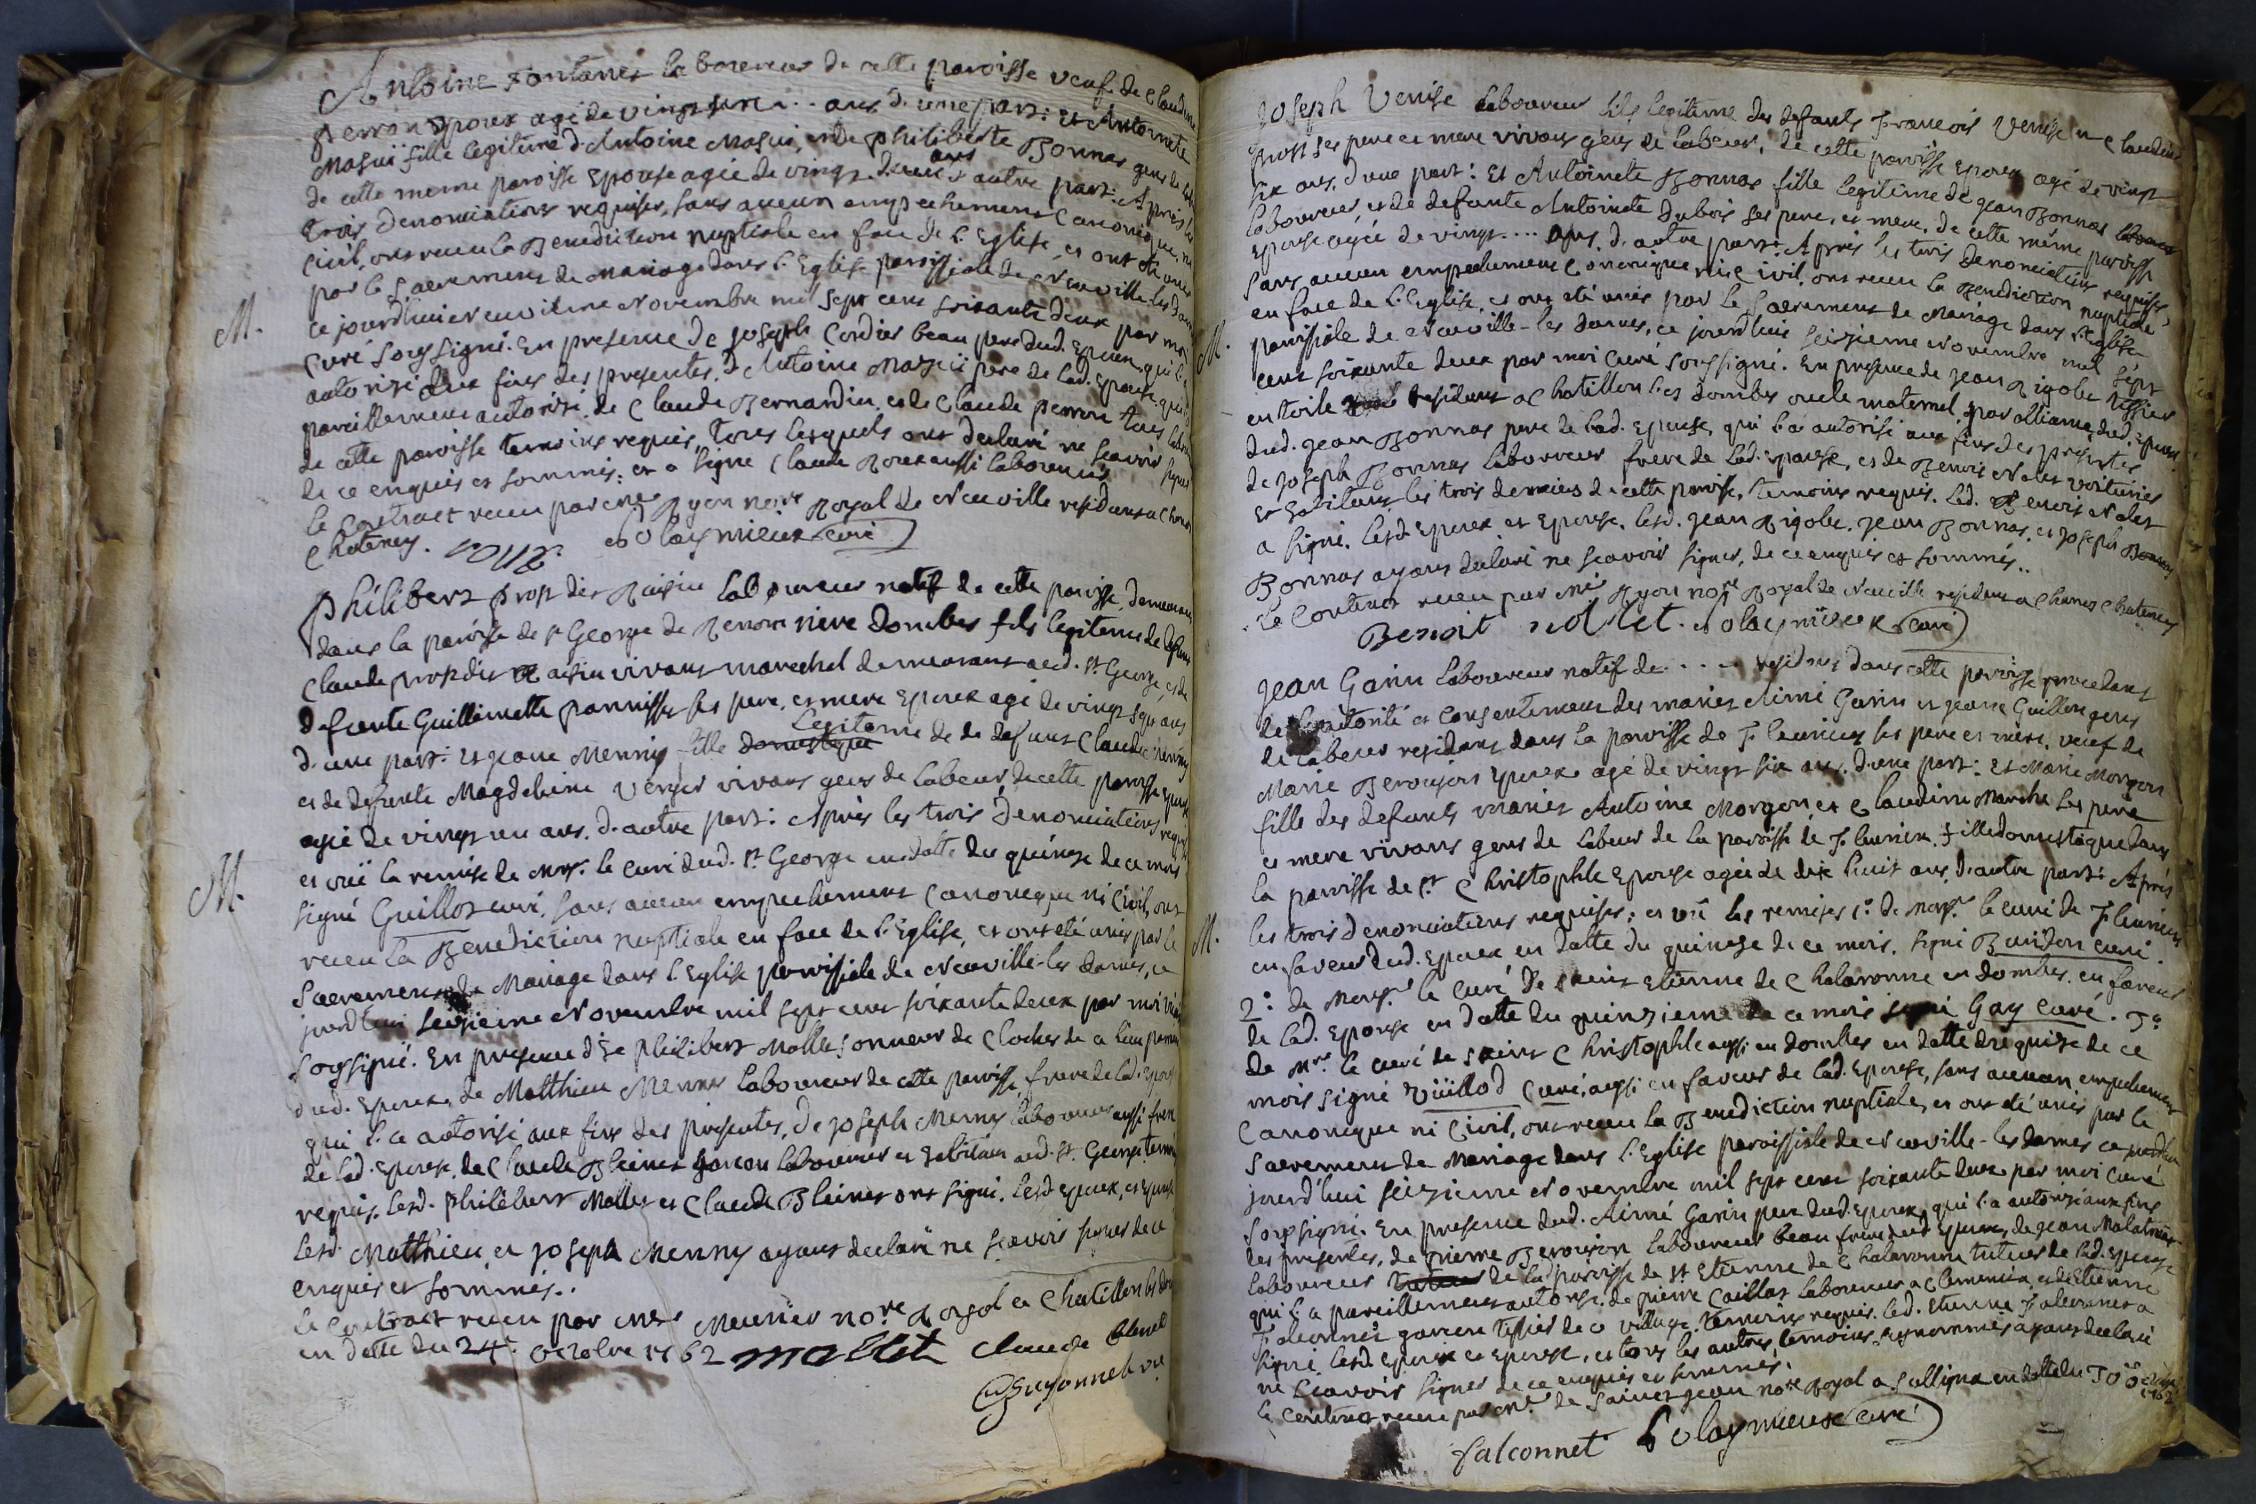 Antoine Fontanet laboureur de cette paroisse veuf de Claudine
Perron Epoux agé de vingt ... ans d'une part: et Antoinete
Masuï fille legitime d'Antoine Masui, et de Philiberte Bonnas gens de
de cette meme paroisse Epouse agée de vingt deux ans d'autre part: Après les
trois denonciations requises, sans aucun empechement Canonique, ni
Civil, ont receu la Benediction nuptiale en face de l'Eglise, et ont eté unis
par le Sacrement de Mariage dans l'Eglise paroissiale de Neuville-les Dames
M.
ce jourdhui neuvieme Novembre mil sept cent soixante deux par moi
Curé Soussigné. En presence de Joseph Cordier beau pere dud. Epoux, qui l'a
autorisé aux fins des presentes, d'Antoine Masuï pere de lad. Epouse, qui l'a
pareillement autorisé, de Claude Bernardin, et de Claude Perron tous
de cette paroisse temoins requis, tous lesquels ont declaré ne scavoir signer
de ce enquis et sommés: et a signé Claude Roux aussi laboureur
le contract receu par me Ryon nore Royal de Neuville residant a Chanos
Chateney. roux Dolaymieux curé
Philibert Prost dit Raisin laboureur natif de cette paroisse, demeurant
dans la paroisse de St George de Renom nive Dombes fils legitime de defunt
Claude prost dit Raisin vivant marechal demeurant aud. St George, et de
defunte Guillemette pannisset ses pere, et mere Epoux agé de vingt sept ans
d'une part: et Jeane Menny fille domestique Legitime de de defunt Claude Menny
et de defunte Magdeleine Verger vivans gens de labeur de cette paroisse Epouse
agée de vingt un ans, d'autre part: Après les trois Denonciations requises
et vuë la remise de Mesr. le curé dud. St George en datte du quinze de ce mois
M.
signé Guillot curé, sans aucun empechement Canonique ni Civil, ont
receu la Benediction nuptiale en face de l'Eglise, et ont eté unis par le
Sacrement de Mariage dans l'Eglise paroissiale de Neuville-les Dames, ce
jourdhui seizieme Novembre mil sept cent soixante deux par moi
soussigné. En presence de Philibert Mallet sonneur de Cloches de ce lieu
dud. Epoux, de Matthieu Menny laboureur de cette paroisse, frere de lad. Epouse
qui l'a autorisé aux fins des presentes, de Joseph Menny laboureur aussi frere
de lad. Epouse, de Claude Blainet garcon laboureur et habitant aud. St. George temoins
requis. lesd. Philibert Mallet et Claude Blainet ont signé. lesd. Epoux, et Epouse
lesd. Matthieu, et Joseph Menny ayant declaré ne scavoir signer de ce
enquis et sommés..
le Contract receu par me Meunier nore Royal a Chatillon les dombes
en datte du 24e octobre 1762 mallet Claude blenet
Guyonnet
Joseph Venise laboureur fils legitime des defunts Francois Venise et Claudine
Prost ses pere et mere vivans gens de labeur, de cette paroisse Epoux agé de vingt
six ans, d'une part: Et Antoinete Bonnas fille legitime de Jean Bonnas
laboureur, et de defunte Antoinete Dubois ses pere, et mere, de cette même paroisse
Epouse agée de vingt .... ans, d'autre part: Après les trois denonciations requises,
sans aucun empechement Canonique ni Civil, ont receu la Benediction nuptiale
en face de l'Eglise, et ont eté unis par le Sacrement de Mariage dans l'Eglise
M.
paroissiale de Neuville-les Dames, ce jourd'hui seizieme Novembre mil sept
cent soixante deux par moi Curé soussigné. En presence de Jean Rigolet tissier
en toile residant a Chatillon les Dombes oncle maternel par alliance dud. Epoux,
dud. Jean Bonnas pere de lad. Epouse, qui l'a autorisé aux fins des presentes
de Joseph Bonnas laboureur frere de lad. Epouse, et de Benoit Nolet voiturier
et habitans les trois derniers de cette paroisse, temoins requis. Led. Benoit Nolet
a signé. Lesd. Epoux et Epouse, lesd. Jean Rigolet, Jean Bonnas, et Joseph
Bonnas ayans declaré ne scavoir signer, de ce enquis et sommés..
Le Contract receu par me Ryon nore Royal de Neuville residant a Chanos Chateney
Benoit nollet Dolaymieux curé
Jean Garin laboureur natif de .... residant dans cette paroisse procedant
de l'autorité et consentement des mariés Aimé Garin et Jeane Guillon gens
de labeur residans dans la paroisse de Fleurieux ses pere et mere, veuf de
Marie Berouson Epoux agé de vingt six ans, d'une part: et Marie Morgon
fille des defunts mariés Antoine Morgon et Claudine Marche ses pere
et mere vivans gens de labeur de la paroisse de Fleurieux fille domestique dans
la paroisse de St Christophle Epouse agée de dix huit ans, d'autre part: Après
M.
les trois denonciations requises; et vuë les remises 1o. de Mesr. le curé de Fleurieux
en faveur dud. Epoux en datte du quinze de ce mois, signé Buidon curé.
2o: de Mesr. le Curé de Saint Etienne de Chalaronne en Dombes, en faveur
de lad. Epouse en datte du quinzieme de ce mois signé Gay Curé. 3o
de Mr. le curé de Saint Christophle aussi en Dombes en datte du quinze de ce
mois signé Vuillod Curé, aussi en faveur de lad. Epouse, sans aucun empechement
Canonique ni Civil, ont receu la Benediction nuptiale, et ont eté unis par le
Sacrement de Mariage dans l'Eglise paroissiale de Neuville-les dames ce
jourd'hui seizieme Novembre mil sept cent soixante deux par moi Curé
soussigné. En presence dud. Aimé Garin pere dud. Epoux, qui l'a autorisé aux fins
des presentes, de Pierre Berouson laboureur beau frere dud Epoux, de Jean
laboureur de la paroisse de St Etienne de Chalaronne tuteur de lad. Epouse
qui l'a pareillement autorisé, de pierre Caillat laboureur a Clemencia, et d'Etienne
Falconnet garcon tissier de ce village, temoins requis. led. Etienne Falconnet a
signé lesd. Epoux et Epouse, et tous les autres temoins susnommés ayans declaré
ne scavoir signer de ce enquis et sommés.
le Contract receu par me. de Saint Jean nore Royal a Sulligna en datte du 30 8bre 1762
falconnet Dolaymieux curé